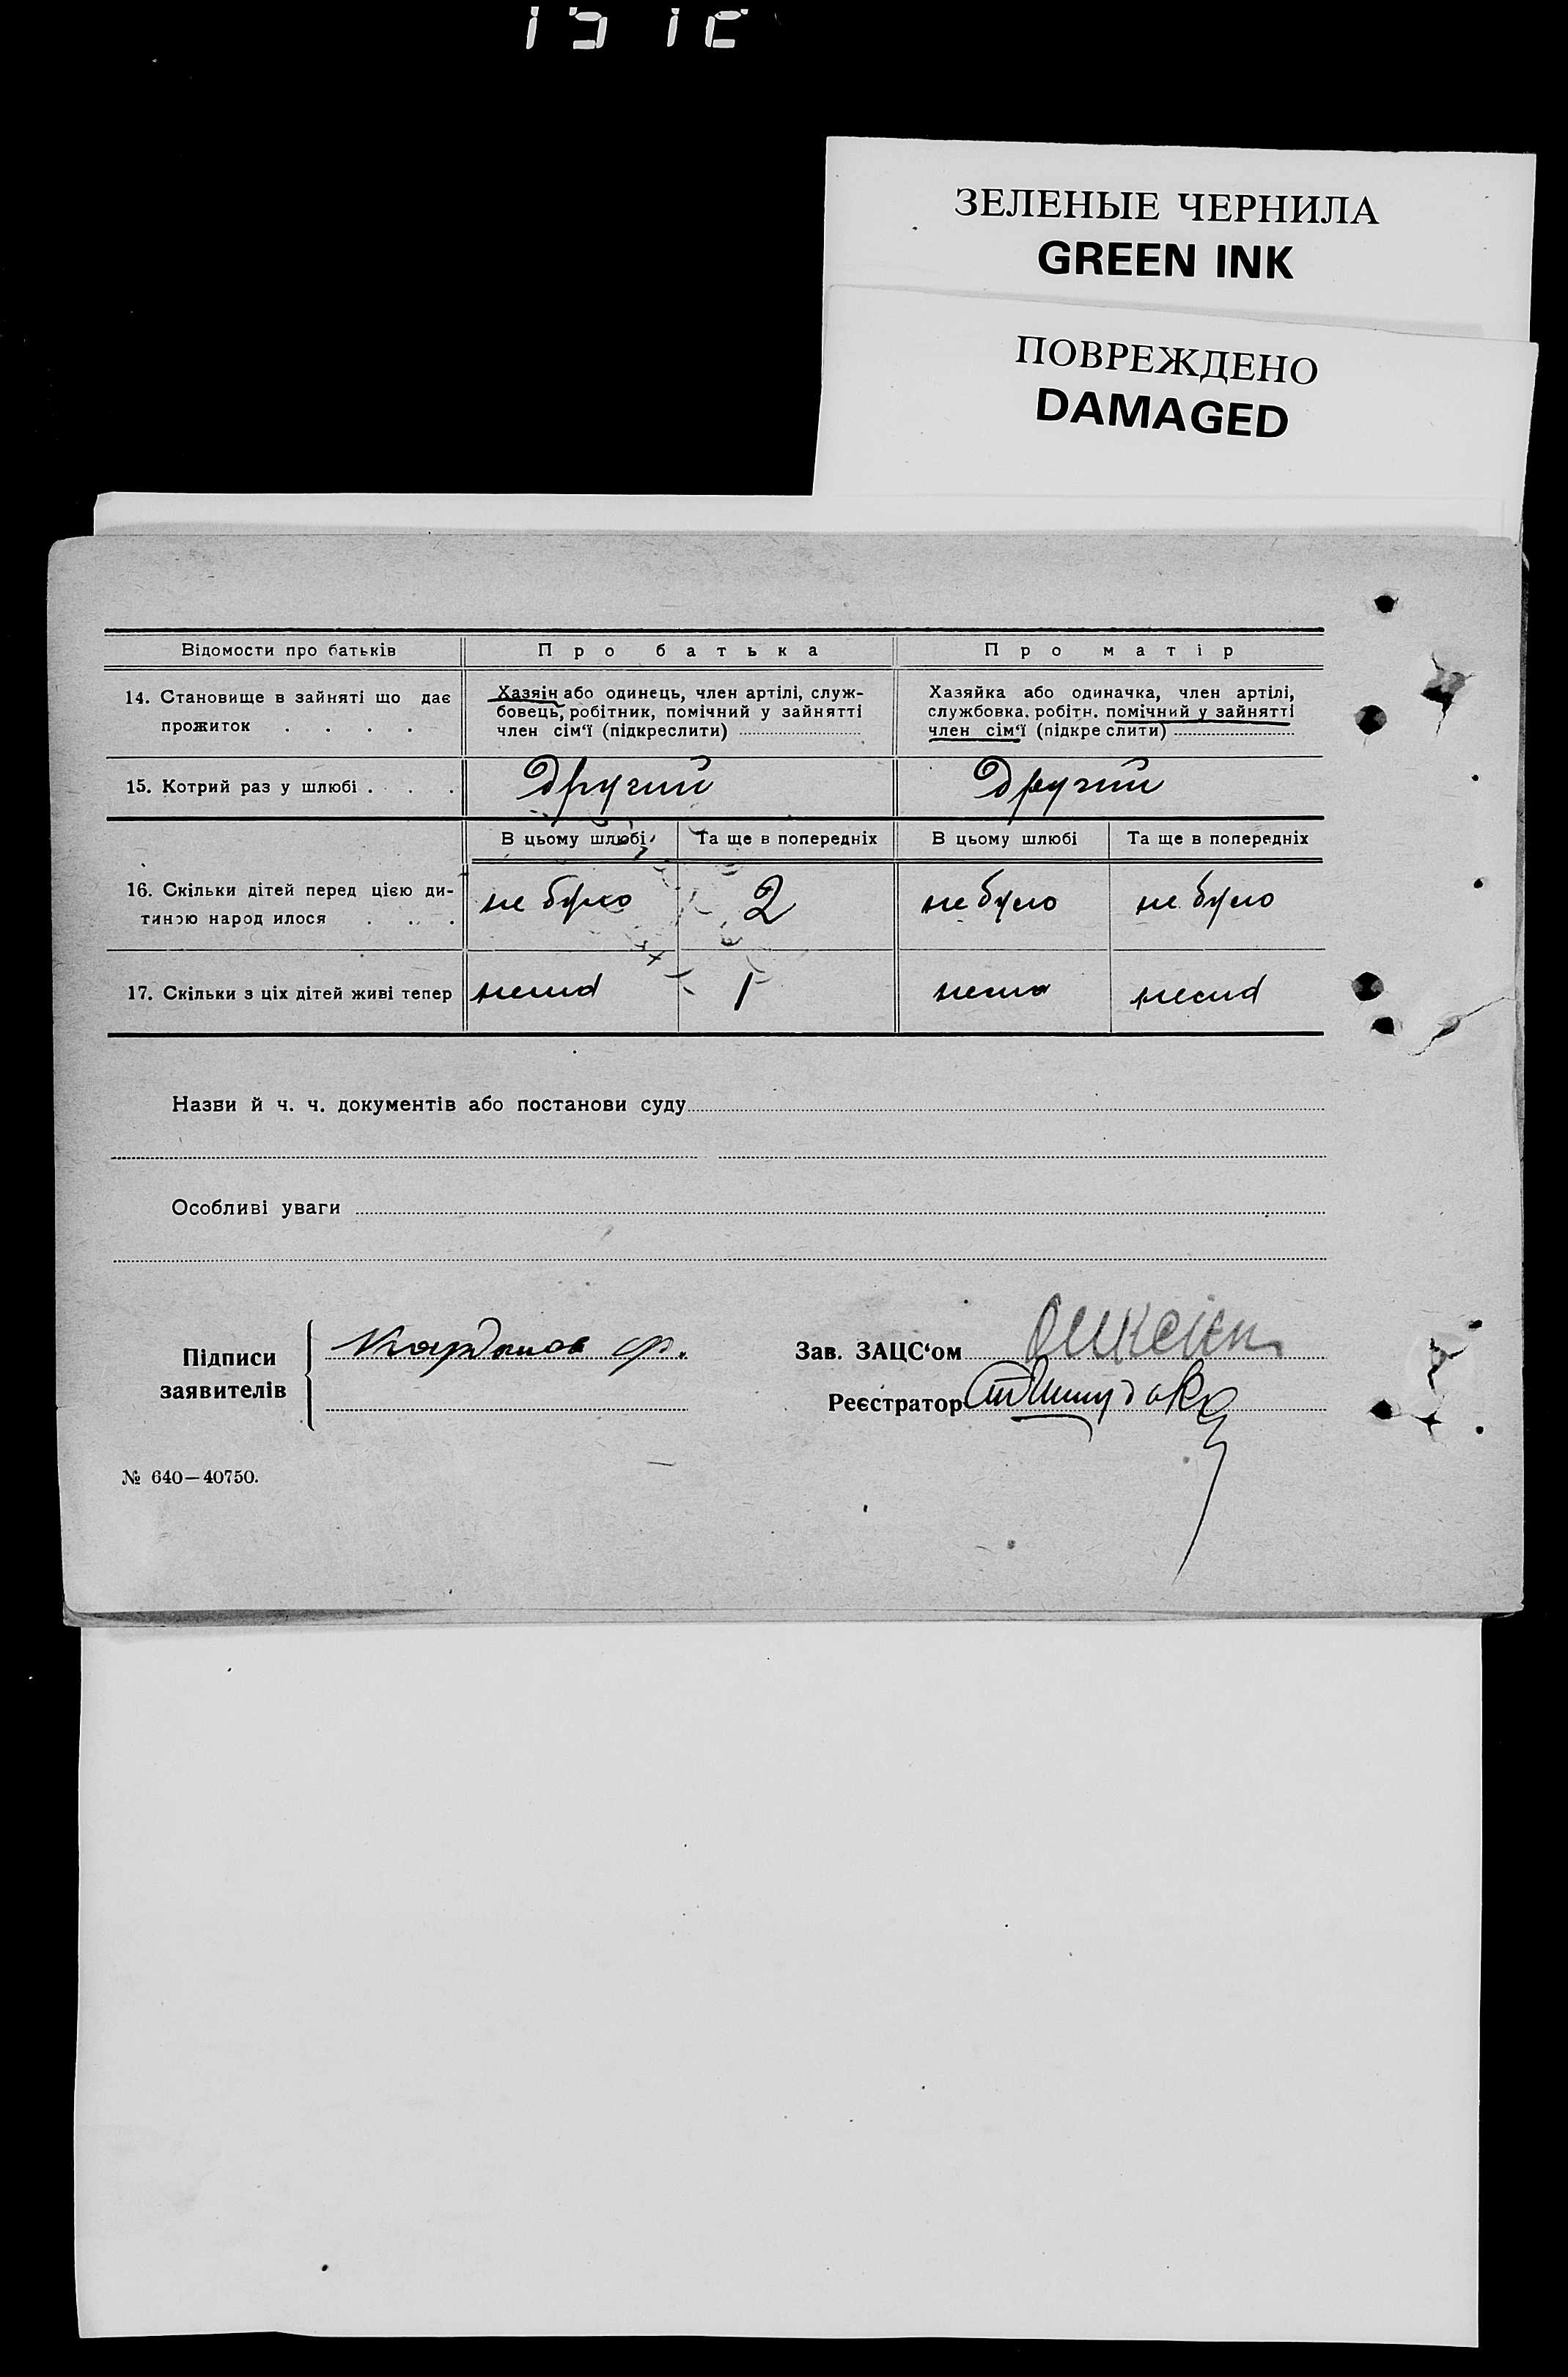 ЗЕЛЕНЫЕ ЧЕРНИЛА
GREEN INK
ПОВРЕЖДЕНО
DAMAGED
Відомости про батьків Про батька Про матір
14. Становище в зайняті що дає прожиток . . . .
Хазяїн або одинець, член артілі, служ-
бовець, робітник, помічний у зайнятті
член сім‘ї (підкреслити)
Хазяйка або одиначка, член артілі,
службовка. робітн. помічний у зайнятті
член сім‘ї (підкреслити)
15. Котрий раз у шлюбі . . . Другий Другий
В цьому шлюбі Та ще в попередніх В цьому шлюбі Та ще в попередніх
16. Скільки дітей перед цією ди-
тиною народилося . . . не було 2 не було не було
17. Скільки з ціх дітей живі тепер нема 1 нема нема
Назви й ч. ч. документів або постанови суду
Особливі уваги
Підписи
заявителів
Ф.
Зав. ЗАЦС‘ом
Реєстратор
№ 640—40750.